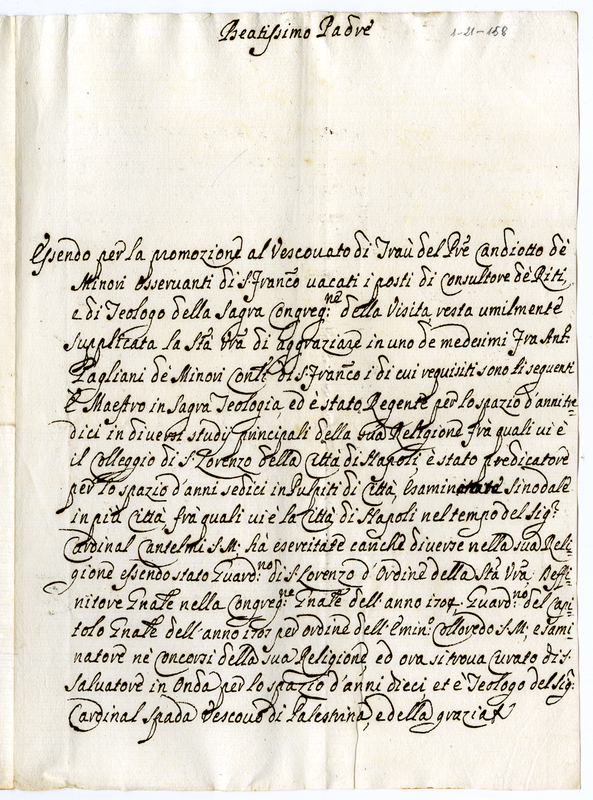 Beatissimo Padre
1-21-158
Essendo per la promozione al Vescovato di Traù del Prẽ Candiotto dè
Minori osservanti di S. Franc̃o vacati i posti di Consultore dè Riti,
e di Teologo della Sagra Congreg:ne della Visita, resta umilmente
supplicata la Stà Vrã di aggraziare in uno de medesimi Fra Ant:
Pagliani dè Minori Conli di S. Franc̃o i di cui requisiti sono li seguenti
È Maestro in Sagra Teologia ed è stato Regente per lo spazio d'anni tre-
dici in diversi studi principali della sua Religione frà quali vi è
il Colleggio di S. Lorenzo della Città di Napoli, è stato predicatore
per lo spazio d'anni sedici in Pulpiti di Città, Esamin sinodale
in più Città, frà quali vi è la Città di Napoli nel tempo del Sig:r
Cardinal Cantelmi S.M; hà esercitate cariche diverse nella sua Reli-
gione essendo stato Guard:no di S. Lorenzo d'Ordine della Stà Vrã, Deffi-
nitore Gnãle nella Congreg:ne Gnãle dell'anno 1704. Guard:no del Capi-
tolo Gnãle dell'anno 1707 per ordine dell'Emin:o Colloredo S.M; esami
natore nè Concorsi della sua Religione, ed ora si trova Curato di S.
Salvatore in Onda per lo spazio d'anni dieci et è Teologo del Sig:
Cardinal Spada Vescovo di Palestrina, e della grazia